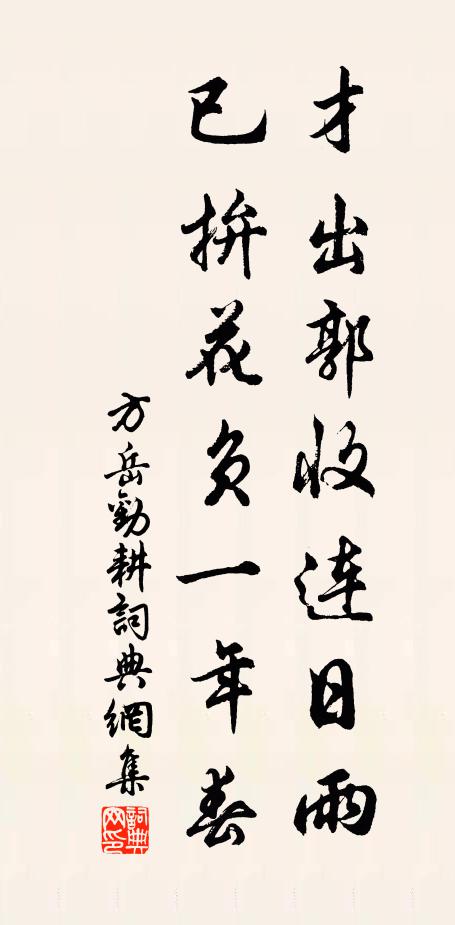 才出郭收連日雨
已拚花負一年春
方岳勸耕詞典網集
詞典網印